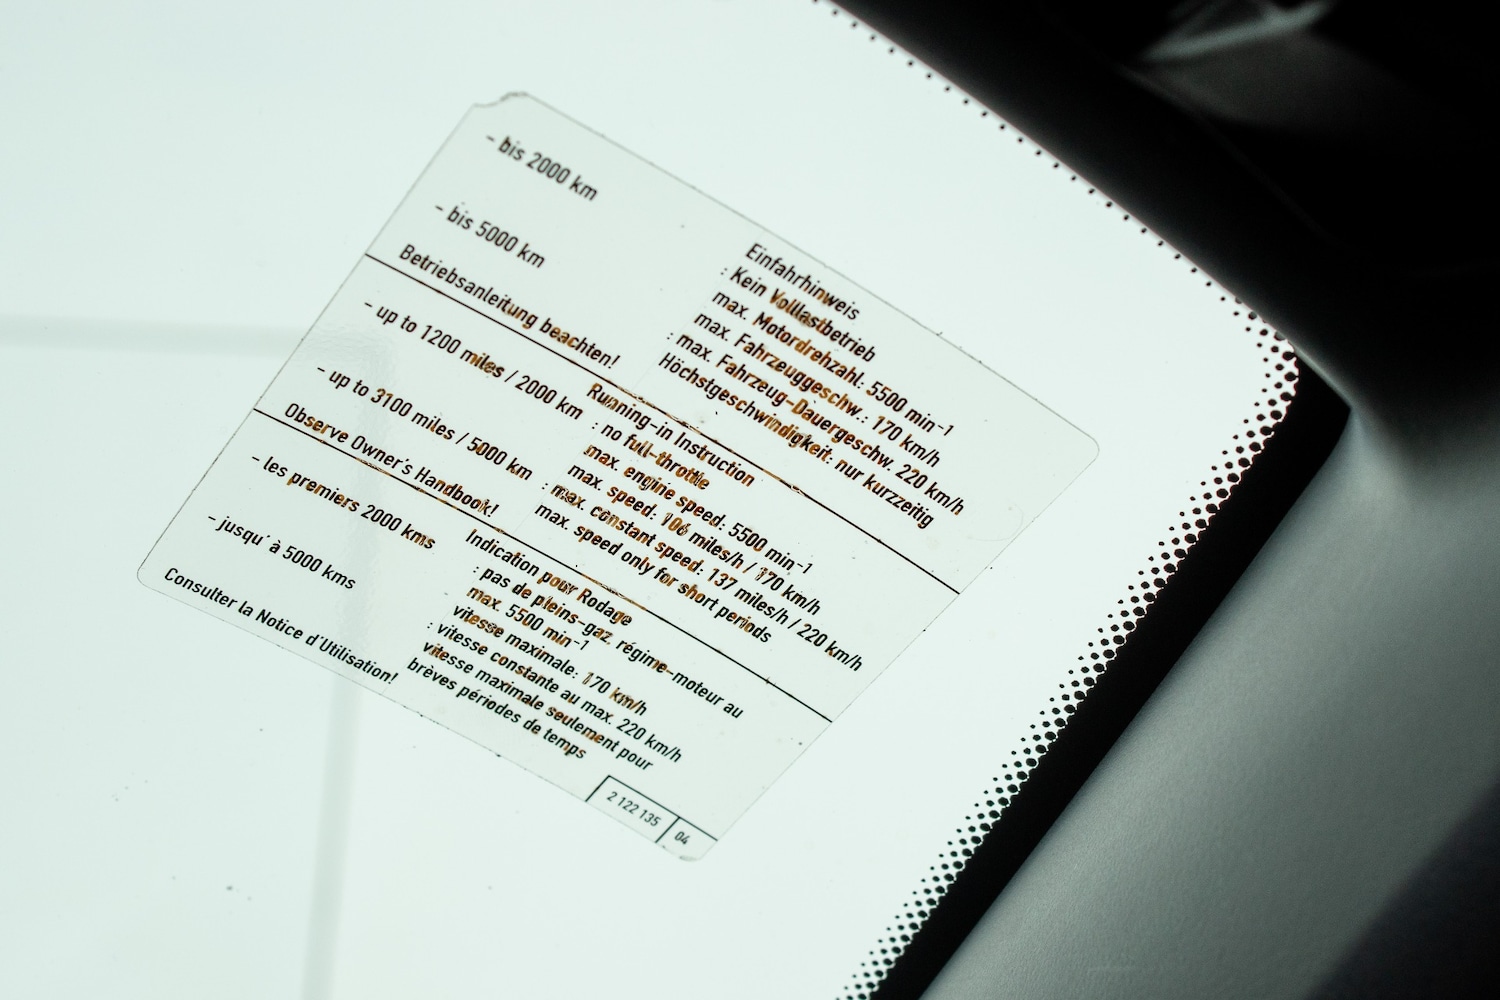 Einfahrhinweis
- bis 2000 km : Kein Volllastbetrieb
max. Motordrehzahl: 5500 min⁻¹
max. Fahrzeuggeschw.: 170 km/h
- bis 5000 km : max. Fahrzeug-Dauergeschw. 220 km/h
Höchstgeschwindigkeit: nur kurzzeitig
Betriebsanleitung beachten!
Running-in Instruction
- up to 1200 miles / 2000 km : no full-throttle
max. engine speed: 5500 min⁻¹
max. speed: 106 miles/h / 170 km/h
- up to 3100 miles / 5000 km : max. constant speed: 137 miles/h / 220 km/h
max. speed only for short periods
Observe Owner's Handbook!
Indication pour Rodage
- les premiers 2000 kms : pas de pleins-gaz, régime-moteur au
max. 5500 min⁻¹
vitesse maximale: 170 km/h
- jusqu´à 5000 kms : vitesse constante au max. 220 km/h
vitesse maximale seulement pour
brèves périodes de temps
Consulter la Notice d'Utilisation!
2 122 135 04